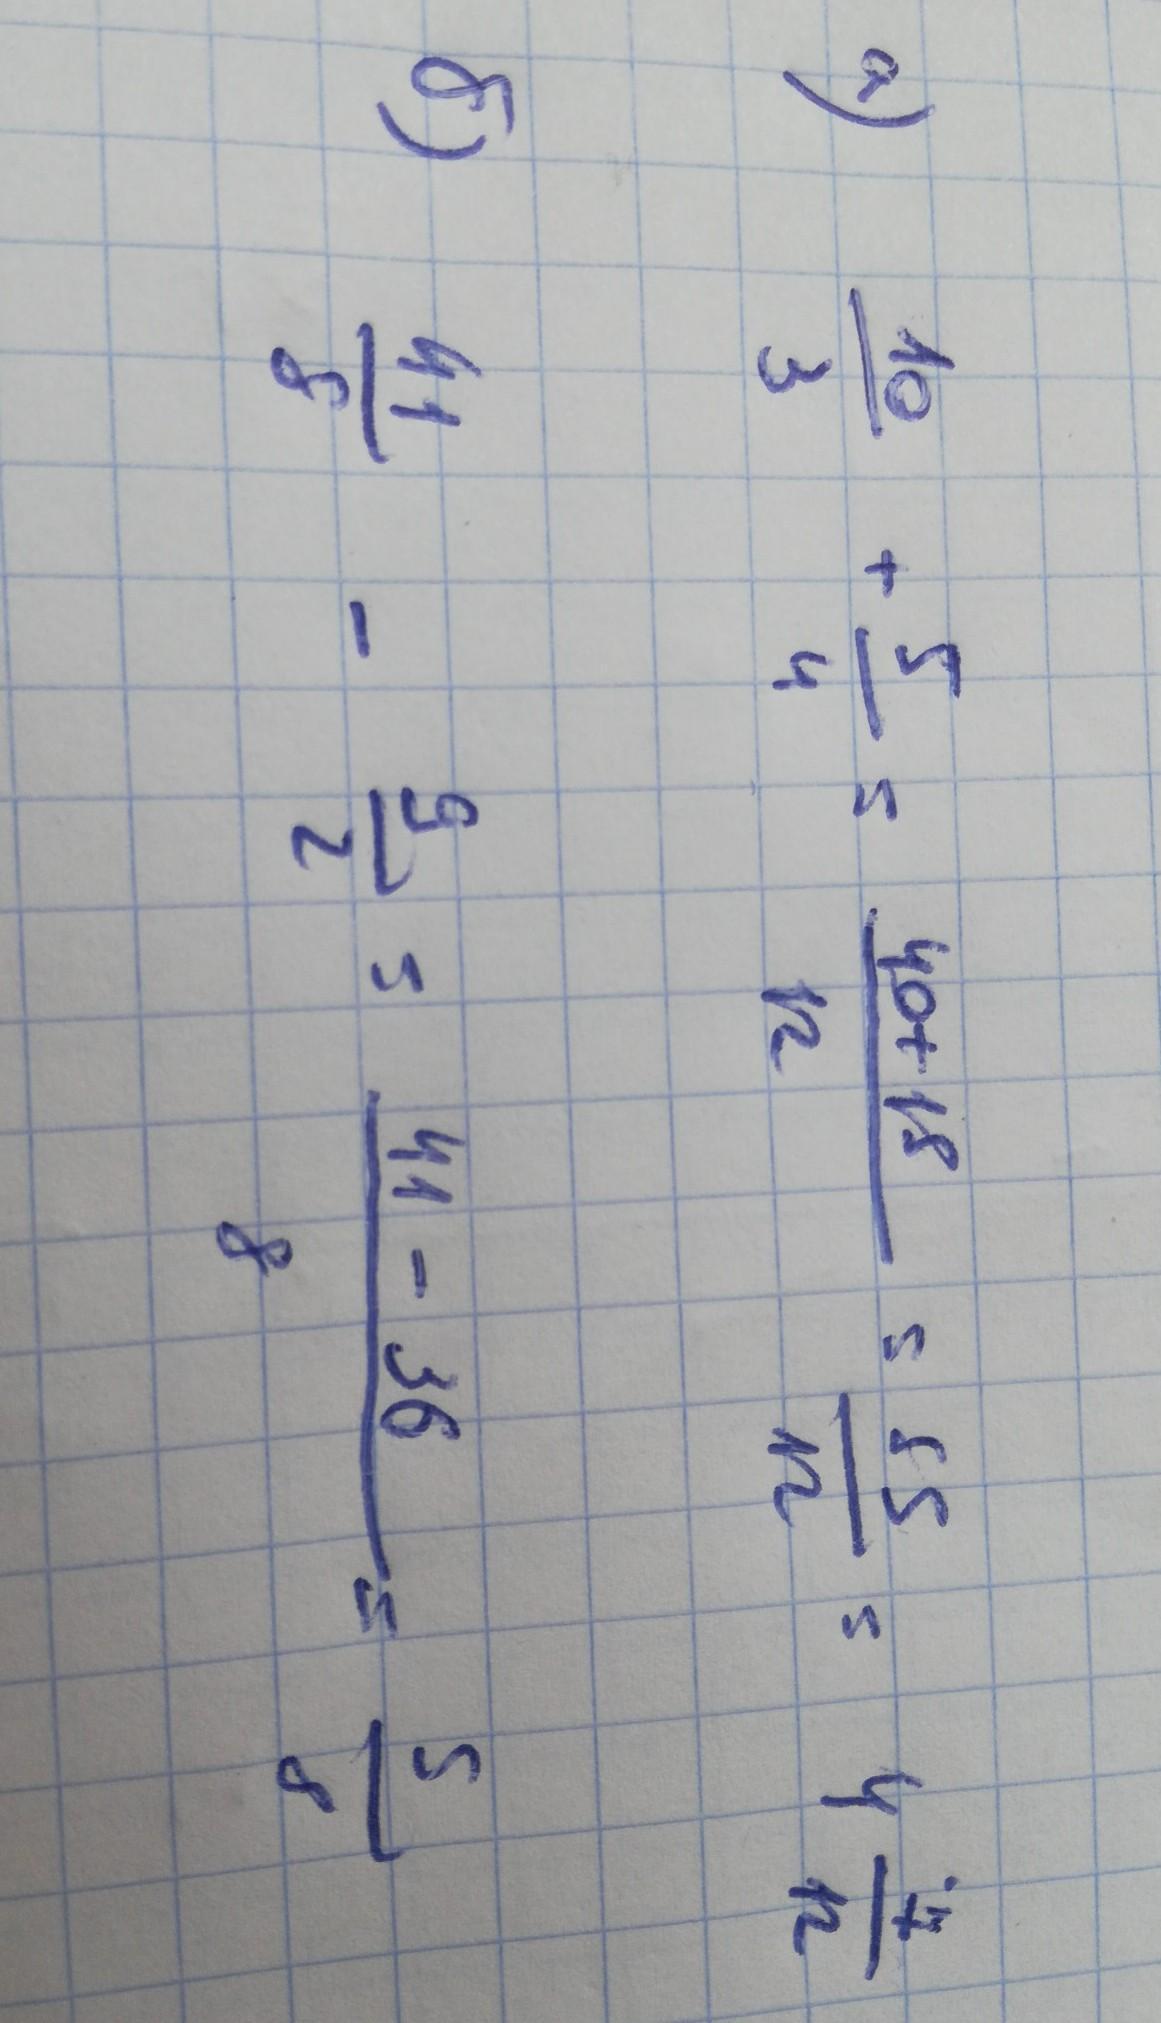 а) 10/3 + 5/4 = 40+15/12 = 55/12 = 4 7/12
б) 41/8 - 9/2 = 41-36/8 = 5/8